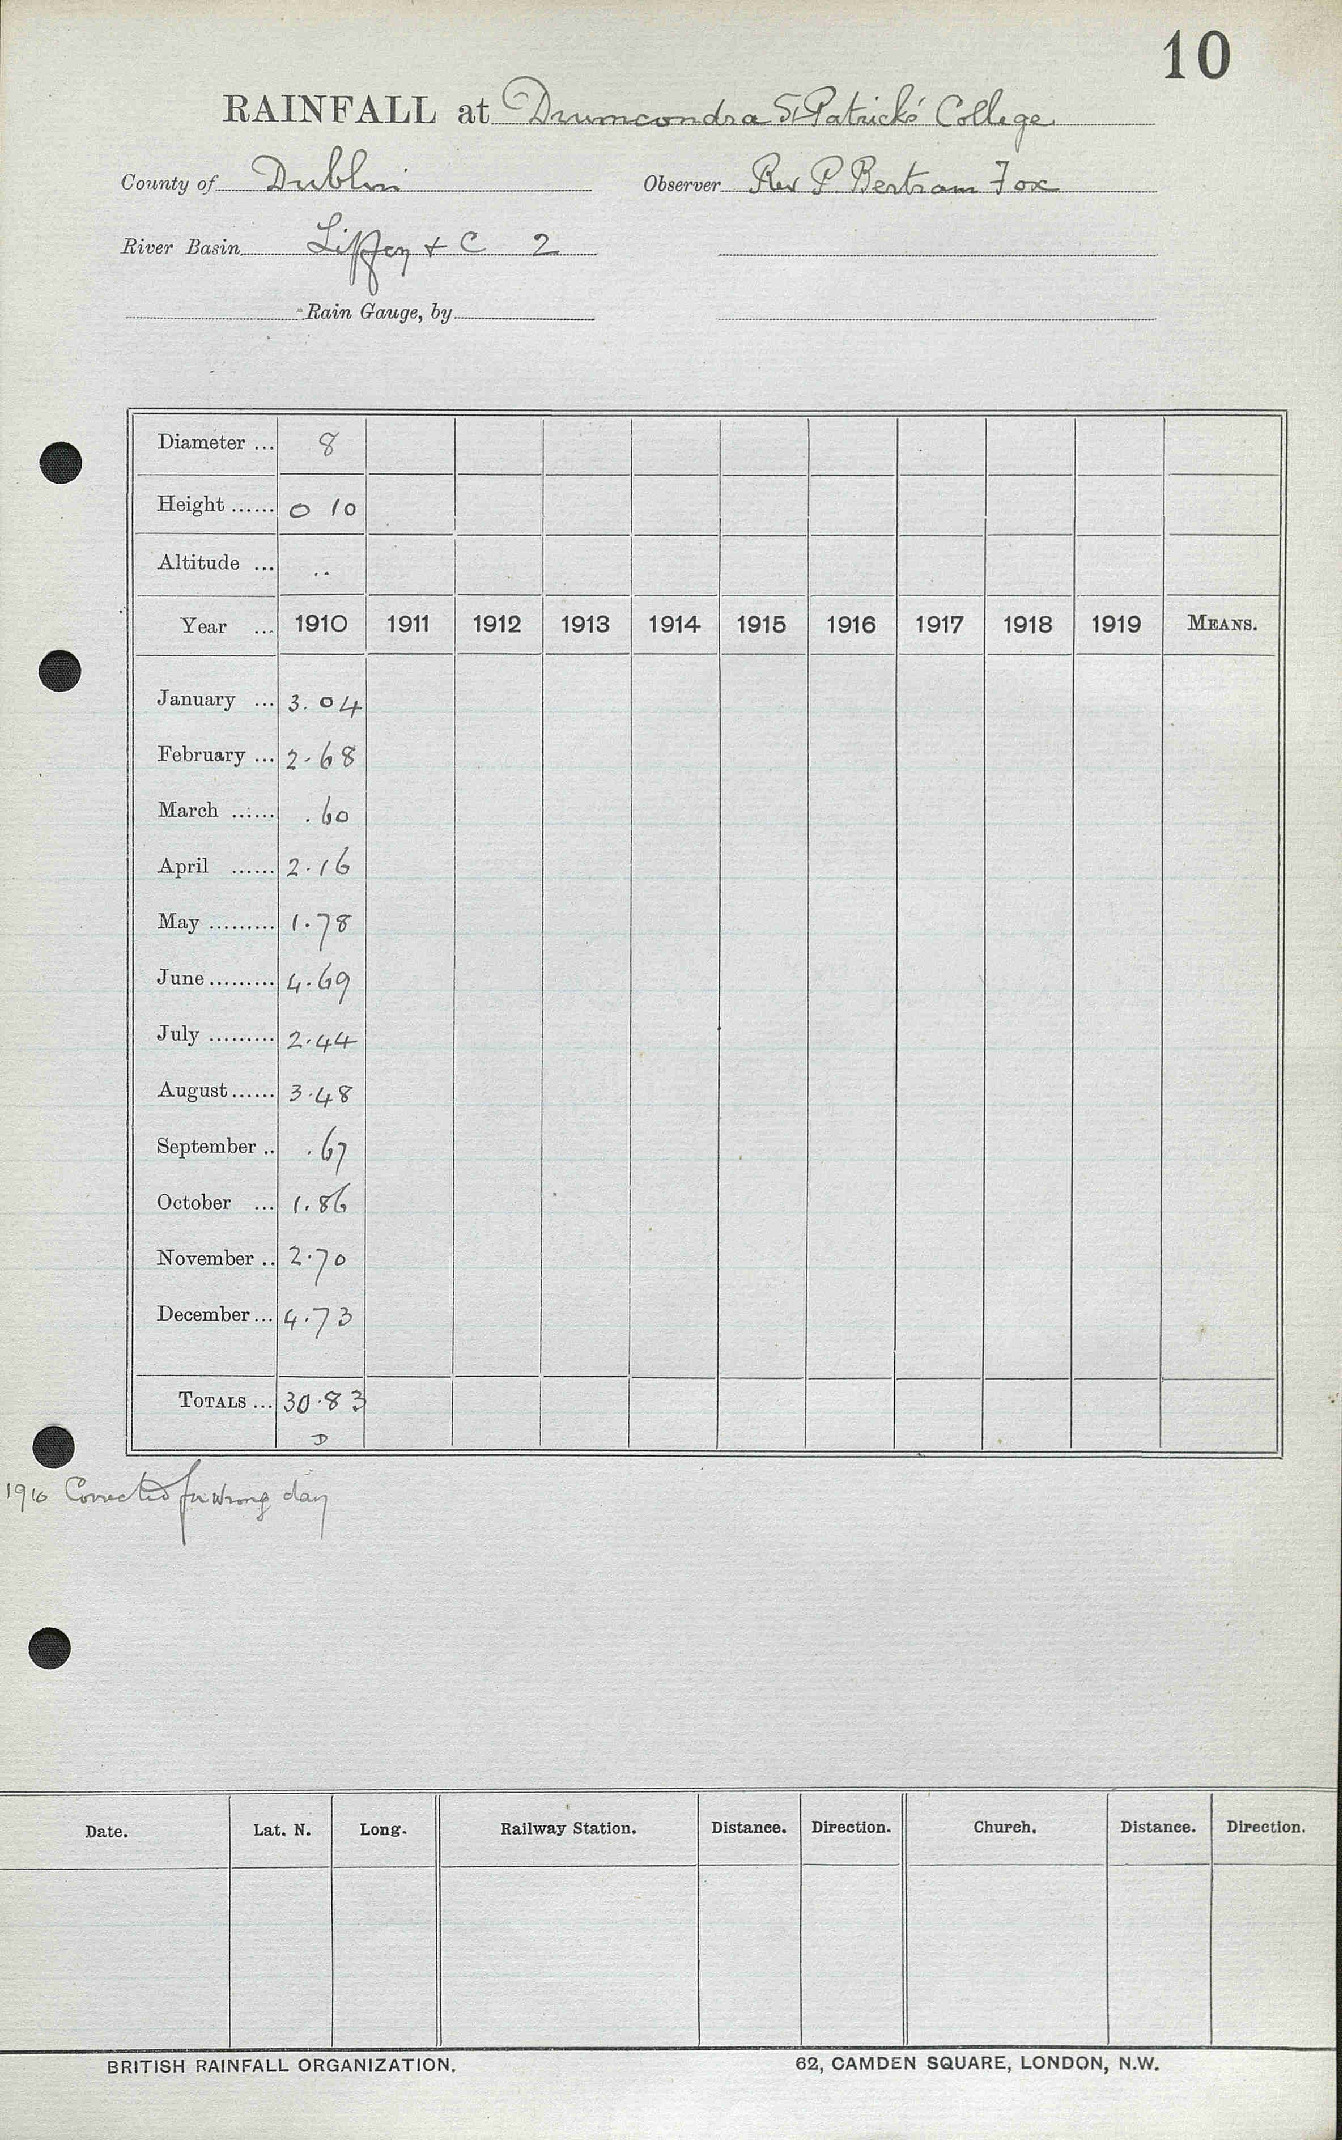 10
RAINFALL at Drumcondra St Patrick's College
County of Dublin Observer Rev P Bertram Fox
River Basin Liffey + C 2
Rain Gauge, by
Diameter ... 8
Height ...... 0 10
Altitude ... ..
Year ... 1910 1911 1912 1913 1914 1915 1916 1917 1918 1919 MEANS.
January ... 3.04
February ... 2.68
March ...... .60
April ...... 2.16
May ......... 1.78
June ......... 4.69
July ......... 2.44
August ...... 3.48
September .. .67
October ... 1.86
November .. 2.70
December ... 4.73
TOTALS ... 30.83
D
1910 Corrected for wrong day
Date. Lat. N. Long. Railway Station. Distance. Direction. Church. Distance. Direction.
BRITISH RAINFALL ORGANIZATION. 62, CAMDEN SQUARE, LONDON, N.W.